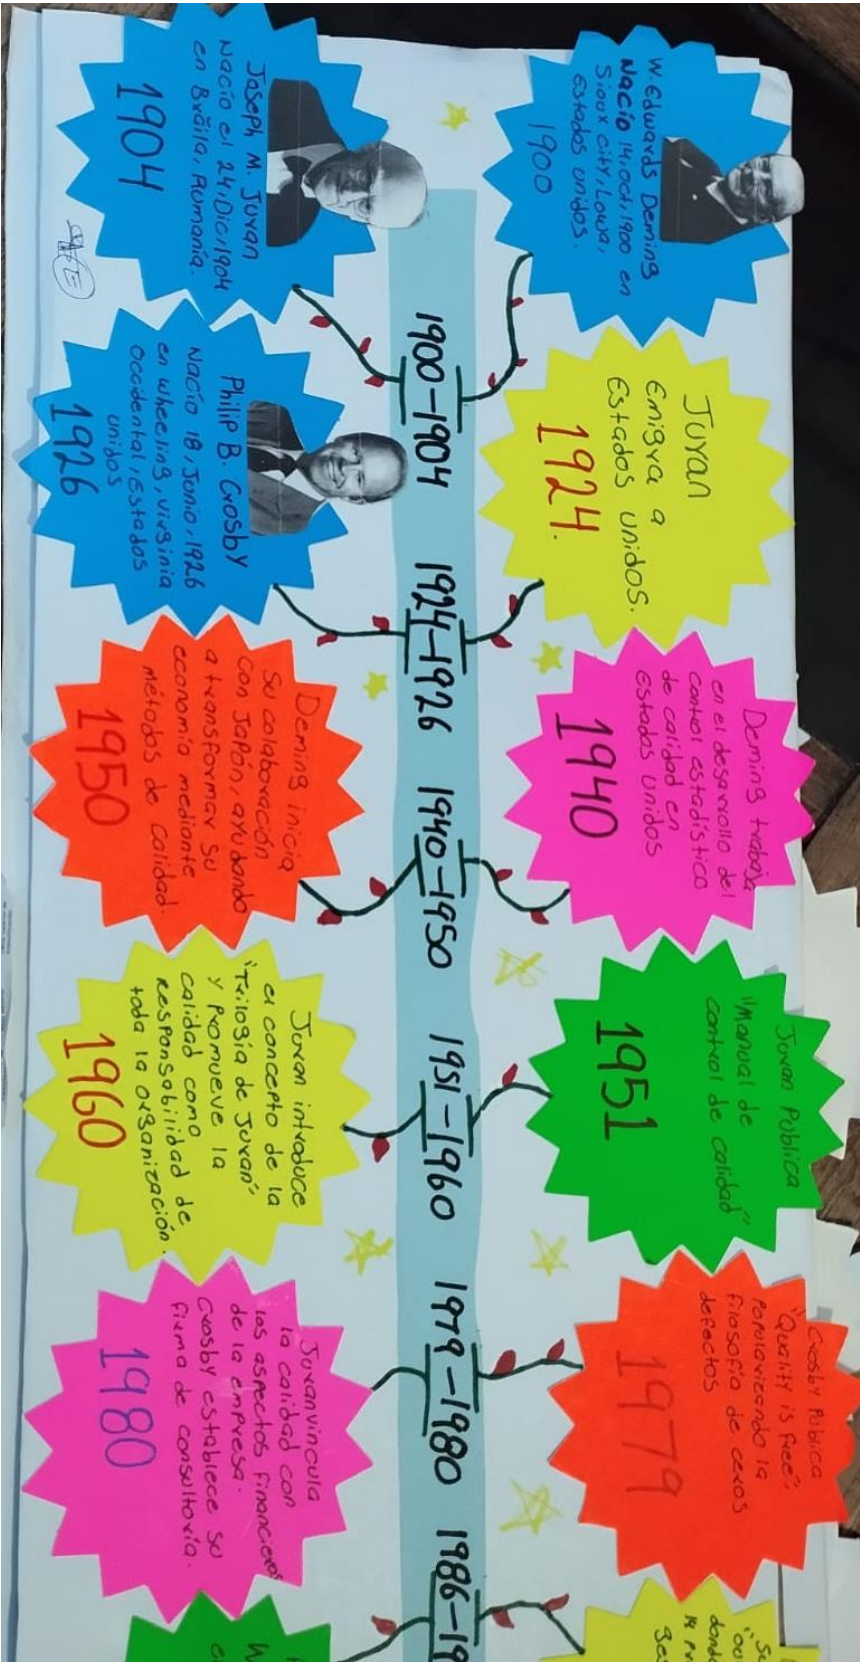 W. Edwards Deming
Nació 14, oct, 1900 en
Sioux city, Lowa,
Estados unidos.
1900
Joseph M. Juran
Nació el 24, Dic, 1904
en Brăila, Rumanía.
1904
1900-1904
Juran
Emigra a
Estados unidos.
1924.
Philip B. Crosby
Nació 18, Junio, 1926
en wheeling, virginia
occidental, Estados
unidos
1926
1924-1926
Deming trabaja
en el desarrollo del
control estadístico
de calidad en
Estados unidos
1940
Deming inicia
su colaboración
con Japón, ayudando
a transformar su
economía mediante
métodos de calidad.
1950
1940-1950
Juran Publica
"Manual de
control de calidad"
1951
Juran introduce
el concepto de la
"Trilogía de Juran"
y promueve la
calidad como
responsabilidad de
toda la organización.
1960
1951-1960
Crosby Publica
"Quality is free",
popularizando la
filosofía de ceros
defectos
1979
Juran vincula
la calidad con
los aspectos financieros
de la empresa.
Crosby establece su
firma de consultoría.
1980
1979-1980
1986-19